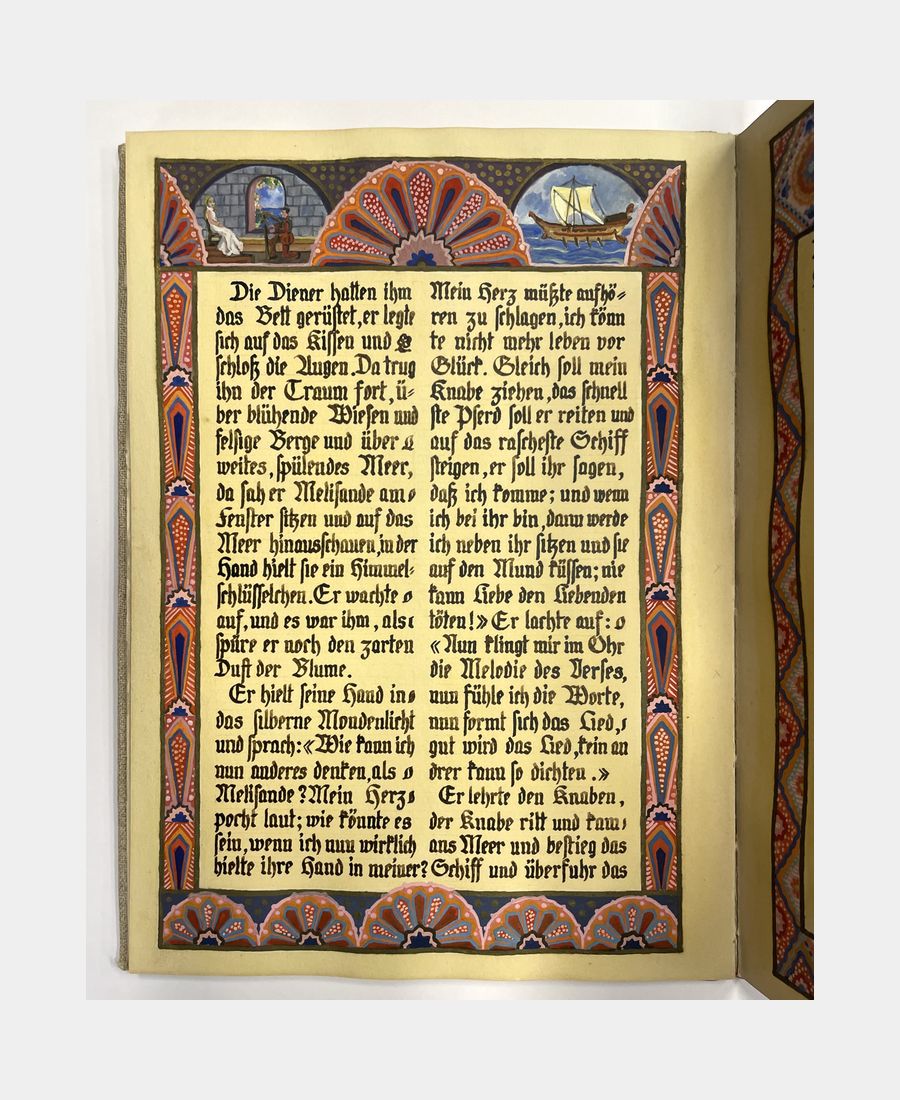 Die Diener hatten ihm
das Bett gerüstet, er legte
sich auf das Kissen und
schloß die Augen. Da trug
ihn der Traum fort, ü-
ber blühende Wiesen und
felsige Berge und über
weites, spülendes Meer,
da sah er Melisande am
Fenster sitzen und auf das
Meer hinausschauen, in der
Hand hielt sie ein Himmel-
schlüsselchen. Er wachte
auf, und es war ihm, als
spüre er noch den zarten
Duft der Blume.
Er hielt seine Hand in
das silberne Mondenlicht
und sprach: «Wie kann ich
nun anderes denken, als
Melisande? Mein Herz
pocht laut; wie könnte es
sein, wenn ich nun wirklich
hielte ihre Hand in meiner?
Mein Herz müßte aufhö-
ren zu schlagen, ich könn
te nicht mehr leben vor
Glück. Gleich soll mein
Knabe ziehen, das schnell
ste Pferd soll er reiten und
auf das rascheste Schiff
steigen, er soll ihr sagen,
daß ich komme; und wenn
ich bei ihr bin, dann werde
ich neben ihr sitzen und sie
auf den Mund küssen; nie
kann Liebe den Liebenden
töten!» Er lachte auf:
«Nun klingt mir im Ohr
die Melodie des Verses,
nun fühle ich die Worte,
nun formt sich das Lied,
gut wird das Lied, kein an
drer kann so dichten.»
Er lehrte den Knaben,
der Knabe ritt und kam
ans Meer und bestieg das
Schiff und überfuhr das